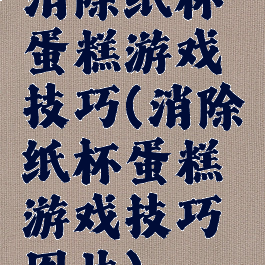 消除纸杯
蛋糕游戏
技巧(消除
纸杯蛋糕
游戏技巧
图片)